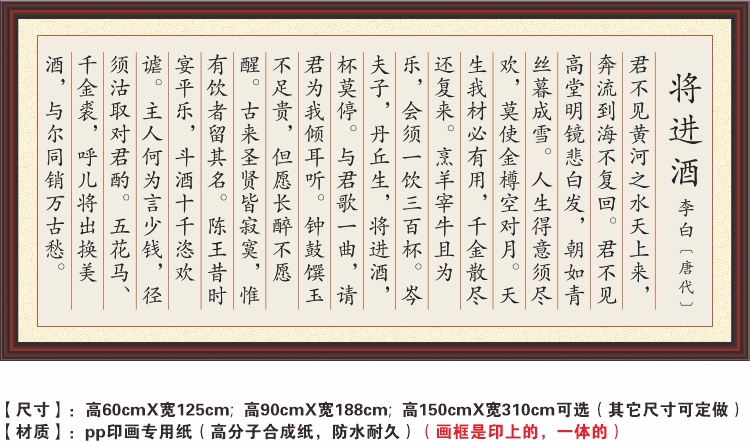 将进酒 李白〔唐代〕
君不见黄河之水天上来，
奔流到海不复回。君不见
高堂明镜悲白发，朝如青
丝暮成雪。人生得意须尽
欢，莫使金樽空对月。天
生我材必有用，千金散尽
还复来。烹羊宰牛且为
乐，会须一饮三百杯。岑
夫子，丹丘生，将进酒，
杯莫停。与君歌一曲，请
君为我倾耳听。钟鼓馔玉
不足贵，但愿长醉不愿
醒。古来圣贤皆寂寞，惟
有饮者留其名。陈王昔时
宴平乐，斗酒十千恣欢
谑。主人何为言少钱，径
须沽取对君酌。五花马、
千金裘，呼儿将出换美
酒，与尔同销万古愁。
【尺寸】：高60cmX宽125cm; 高90cmX宽188cm; 高150cmX宽310cm可选（其它尺寸可定做）
【材质】：pp印画专用纸（高分子合成纸，防水耐久）（画框是印上的，一体的）